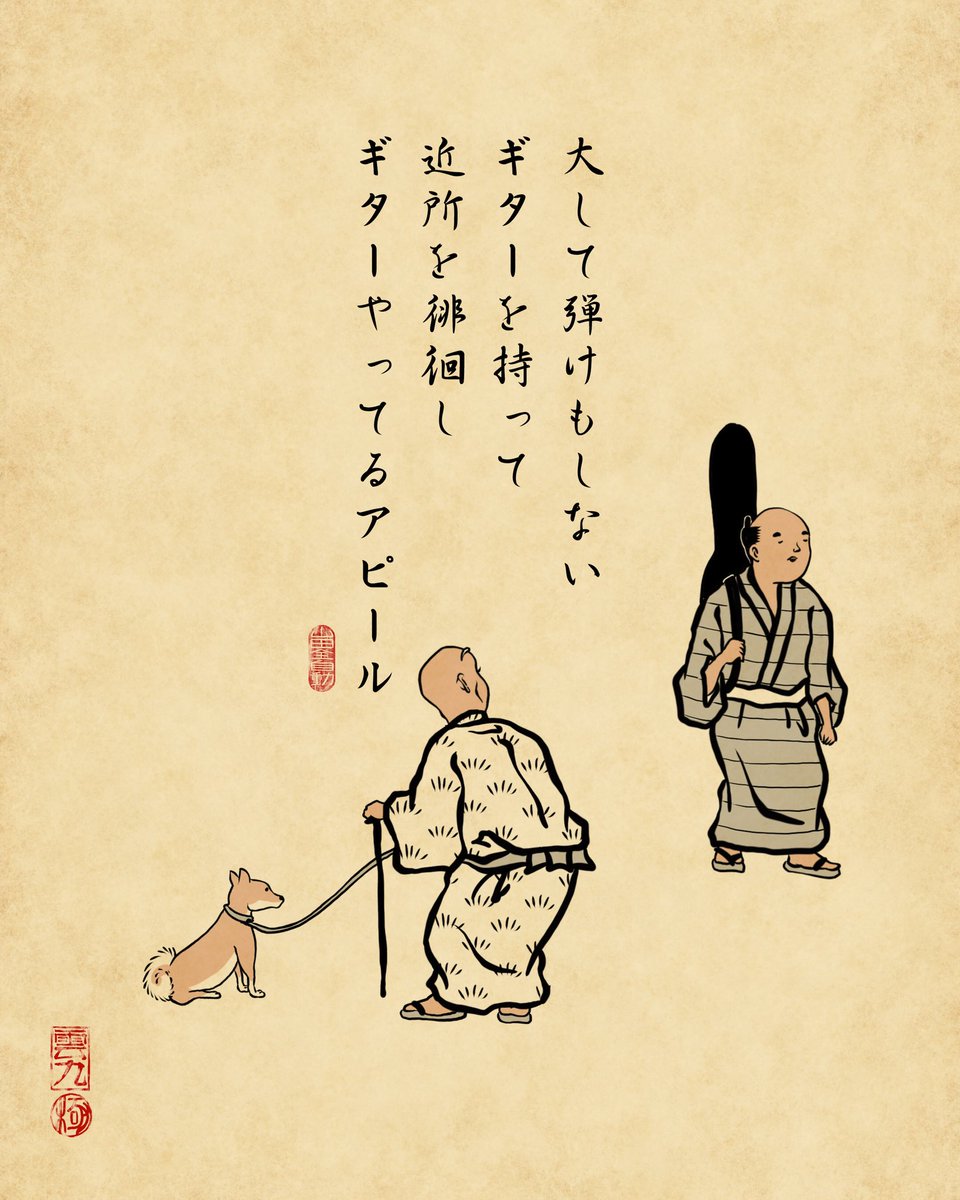 大して弾けもしない
ギターを持って
近所を徘徊し
ギターやってるアピール